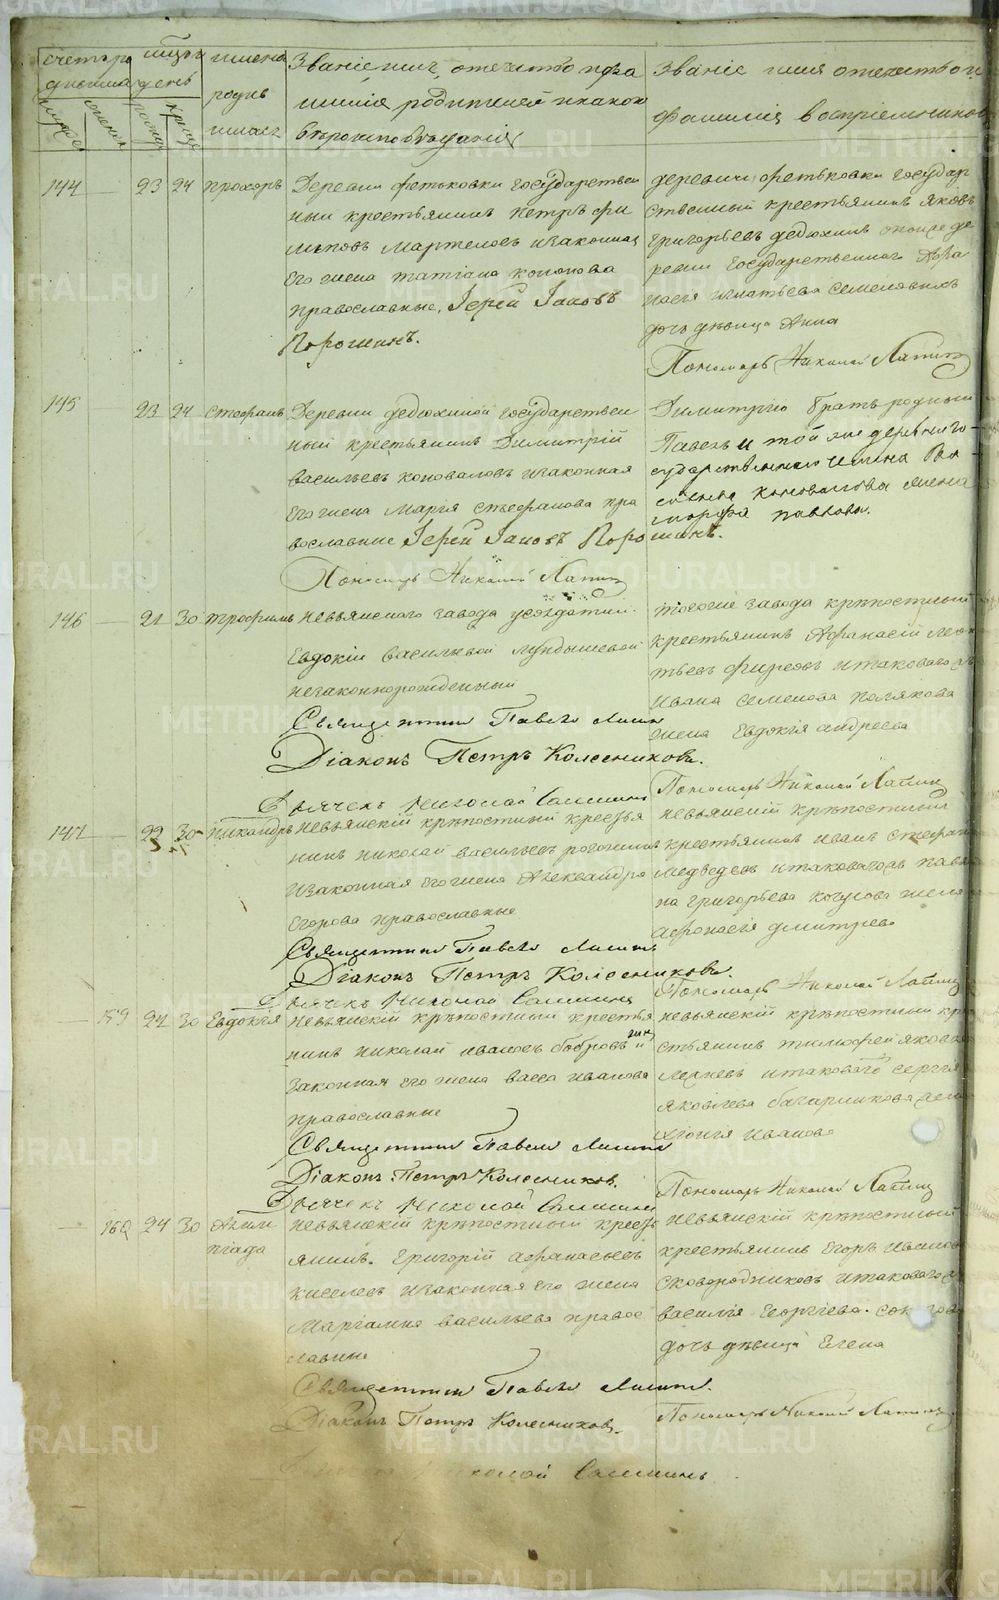 счетъ ро
дившихся
мужеска
женска
мѣсяцъ
день
рожд
крещ
имена
родив
шихся
Званіе имя, отечество и фа
милія родителей и какого
вѣроисповѣданія
Званіе имя отечество и
фамилія воспріемниковъ
144 23 24 Прохоръ
Деревни Фетьковки государствен
ный крестьянинъ Петръ Фи
липовъ Мартелов и законная
его жена Татіана Кононова
православные, Іерей Іаковъ
Порошинъ.
деревни Фетьковки государ
ственный крестьянинъ Яковъ
Григорьевъ Дедюхинъ оной де
ревни государственнаго Афа
насія Игнатьева Семеновыхъ
дочь дѣвица Анна
Пономарь Николай Лапин
145 23 24 Стефанъ
Деревни Дедюхиной государствен
ный крестьянинъ Димитрій
Васильевъ Коноваловъ и законная
его жена Марія Стефанова пра
вославные Іерей Іаковъ Порошинъ.
Пономарь Николай Лапин
Димитрію братъ родный
Павелъ и той же деревни го-
сударственнаго Ва-
сильева Коновалова жена
Марфа Павлова.
146 21 30 Трофимъ
Невьянскаго завода у солдатки
Евдокіи Васильевой Лундышевой
незаконнорожденный
Священникъ Павелъ
Діаконъ Петръ Колесниковъ.
Дьячекъ Николай Сашинъ
того же завода крѣпостный
крестьянинъ Афанасій Леон
тьевъ Фирсовъ и таковаго
Ивана Семенова Полякова
жена Евдокія Андреева
Пономарь Николай Лапин
147 22 30 Никандръ
Невьянскій крѣпостный крестья
нинъ Николай Васильевъ Рогожинъ
и законная его жена Александра
Егорова православные
Священникъ Павелъ
Діаконъ Петръ Колесниковъ.
Дьячекъ Николай Сашинъ
невьянскій крѣпостный
крестьянинъ Иванъ Стефан
Медведевъ и таковагожъ Павл
на Григорьева жена
Афонасія Дмитрева
Пономарь Николай Лапин
159 27 30 Евдокія
Невьянскій крѣпостный крестья
нинъ Николай Ивановъ Бобровъ и
законная его жена Васса Иванова
православные
Священникъ Павелъ
Діаконъ Петръ Колесников.
Дьячекъ Николай Сашинъ
невьянскій крѣпостный кре
стьянинъ Тимофей Яковл
и таковаго Сергія
Яковлева жена
Иванова
Пономарь Николай Лапин
160 24 30 Олим
піада
Невьянскій крѣпостный крестья
янинъ Григорій Афанасьевъ
Киселевъ и законная его жена
Маргамна Васильева правос
лавные
Священникъ Павелъ
Діаконъ Петръ Колесниковъ.
Николай Сашинъ
Невьянскій крѣпостный
крестьянинъ Егоръ Иванов
Сковородниковъ и таковаго
Василія Георгіева
дочь дѣвица Елена
Пономарь Николай Лапин
METRIKI.GASO-URAL.RU